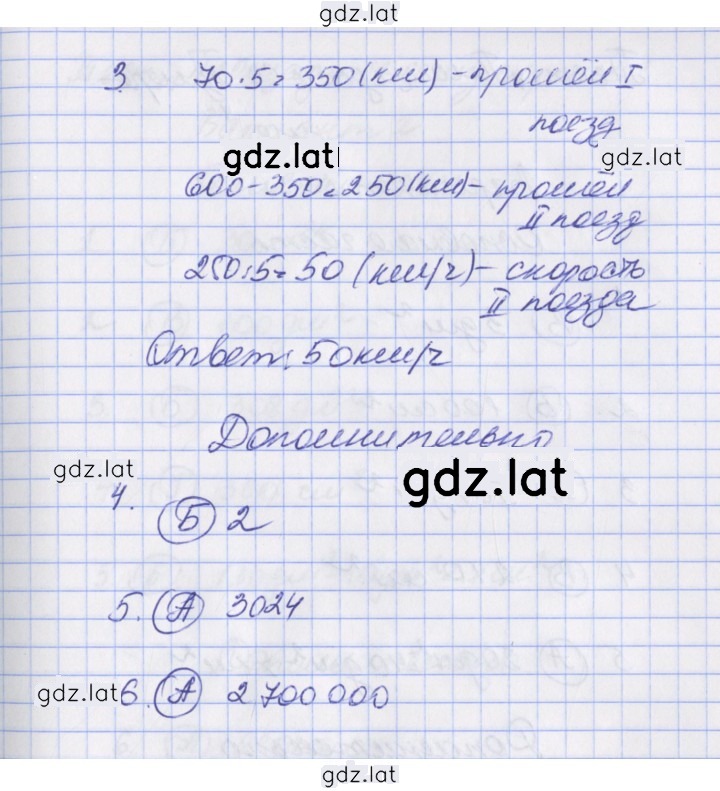 gdz.lat
3. 70·5=350(км) - прошёл I
поезд
gdz.lat
gdz.lat
600-350=250(км) - прошёл
II поезд
250:5=50 (км/ч) - скорость
II поезда
Ответ: 50км/ч
Дополнительно
gdz.lat
gdz.lat
4. Б 2
5. А 3024
gdz.lat
6. А 2 700 000
gdz.lat